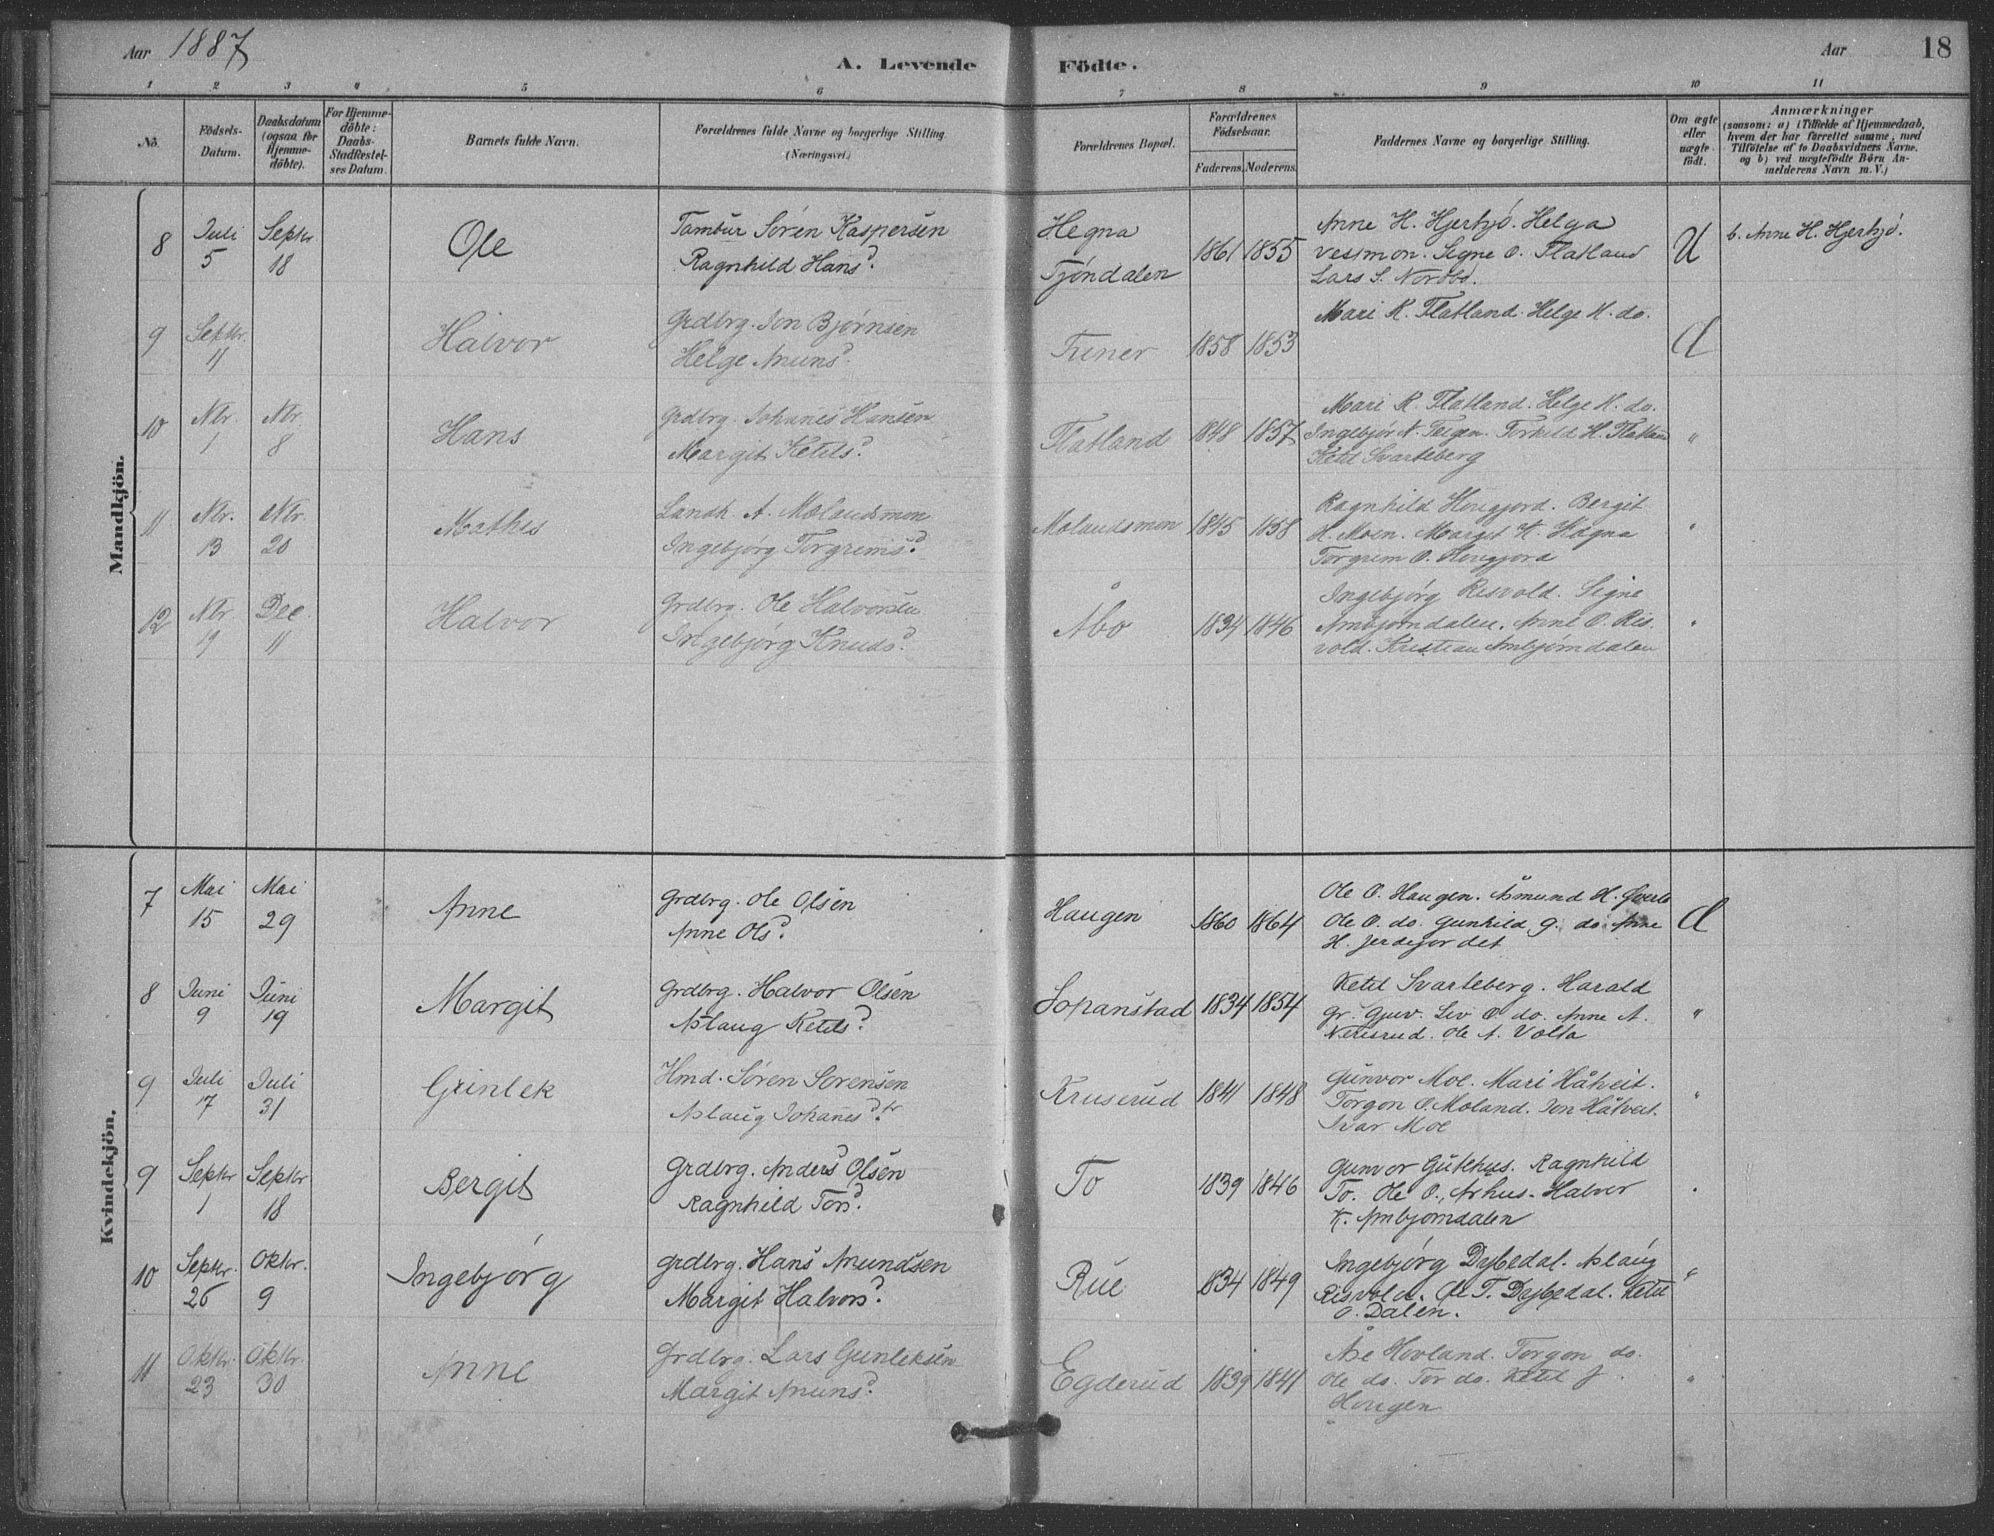 Aar 1887
A. Levende Födte.
Aar
18
1 2 3 4 5 6 7 8 9 10 11
No. | Födsels-Datum. | Daabsdatum (ogsaa for Hjemmedöbte). | For Hjemmedöbte: Daabs-Stadfæstelses Datum. | Barnets fulde Navn. | Forældrenes fulde Navne og borgerlige Stilling. (Næringsvei.) | Forældrenes Bopæl. | Forældrenes Födselsaar. Faderens. Moderens. | Faddernes Navne og borgerlige Stilling. | Om ægte eller uægte födt. | Anmærkninger (saasom: a) i Tilfælde af Hjemmedaab, hvem der har forrettet samme, med Tilföielse af to Daabsvidners Navne. og b) ved uægtefödte Börn Anmelderens Navn m. V.)
Mandkjön.
8 Juli 5 Septbr 18 Ole Tambur Sören Kaspersen Ragnhild Hansd. Hegna Tjöndalen 1861 1855 Anne H. Hjertsjö. Helga Vesimon. Signe O. Flatland Lars S. Nordbö. U b. Anne H. Hjertsjö.
9 Septbr. 11 Halvor Grdbrg. Jon Bjørnsen Helge Amunsd. 1858 1853 Mari K. Flatland. Helge K. do.
10 Nbr. 1 Nbr. 8 Hans Grdbrg. Johanes Hansen Margit Ketilsd. Flatland 1848 1857 Mari K. Flatland. Helge K. do. Ingebjør N. Teigen. Torkild H. Flatland Ketil Svarteberg "
11 Nbr. 13 Nbr. 20 Mathis A. Molandsmon Ingebjörg Torgrimsd. Molandsmon 1845 1858 Ragnhild Hougjord. Bergit H. Moen. Margit H. Hægna Torgrim O. Hougjord "
12 Nbr 19 Dec. 11 Halvor Grdbrg. Ole Halvorsen Ingebjørg Knudsd. Åbø 1834 1846 Ingebjørg Risvold. Signe Ambjørndalen. Anne O. Risvold. Kristian Ambjørndalen "
Kvindekjön.
7 Mai 15 Mai 29 Anne Grdbrg. Ole Olsen Anne Olsd. Haugen 1860 1864 Ole O. Haugen. Åsmund H. Ole O. do. Gunhild G. do Anne H. Jerdefjordet
8 Juni 9 Juni 19 Margit Grdbrg. Halvor Olsen Aslaug Ketilsd. Sopanstad 1834 1854 Ketil Svarteberg. Harald Gr. Guv. Liv O. do. Anne A. Nerisrud. Ole A. Volla "
9 Juli 17 Juli 31 Gunlek Hmd. Søren Sorensen Aslaug Johanesdtr. Kruserud 1841 1848 Gunvor Moe. Mari Håtveit. Torgon O. Moland. Jon Håtveit. Ivar Moe "
9 Septbr 1 Septbr 18 Bergit Grdbrg. Anders Olsen Ragnhild Torsd. To 1839 1846 Gunvor Gutehus. Ragnhild To. Ole O. Århus. Halvor K. Ambjørndalen
10 Septbr. 25 Oktbr. 9 Ingebjørg Grdbrg. Hans Amundsen Margit Halvorsd. Rue 1834 1849 Ingebjørg Dybedal. Aslaug Risvold. Ole T. Dybedal. Ketil O. Dalen. "
11 Oktbr. 23 Oktbr. 30 Anne Grdbrg. Lars Gunleksen Margit Amunsd. Egderud 1839 1841 Åse Hovland. Torgon do. Ole do. Tor do. Ketil J. Hougen "